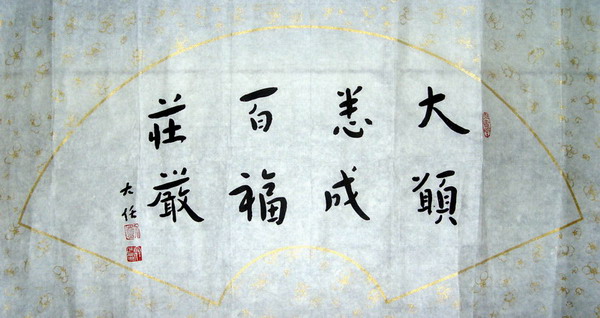 大願
悉成
百福
莊厳
大任